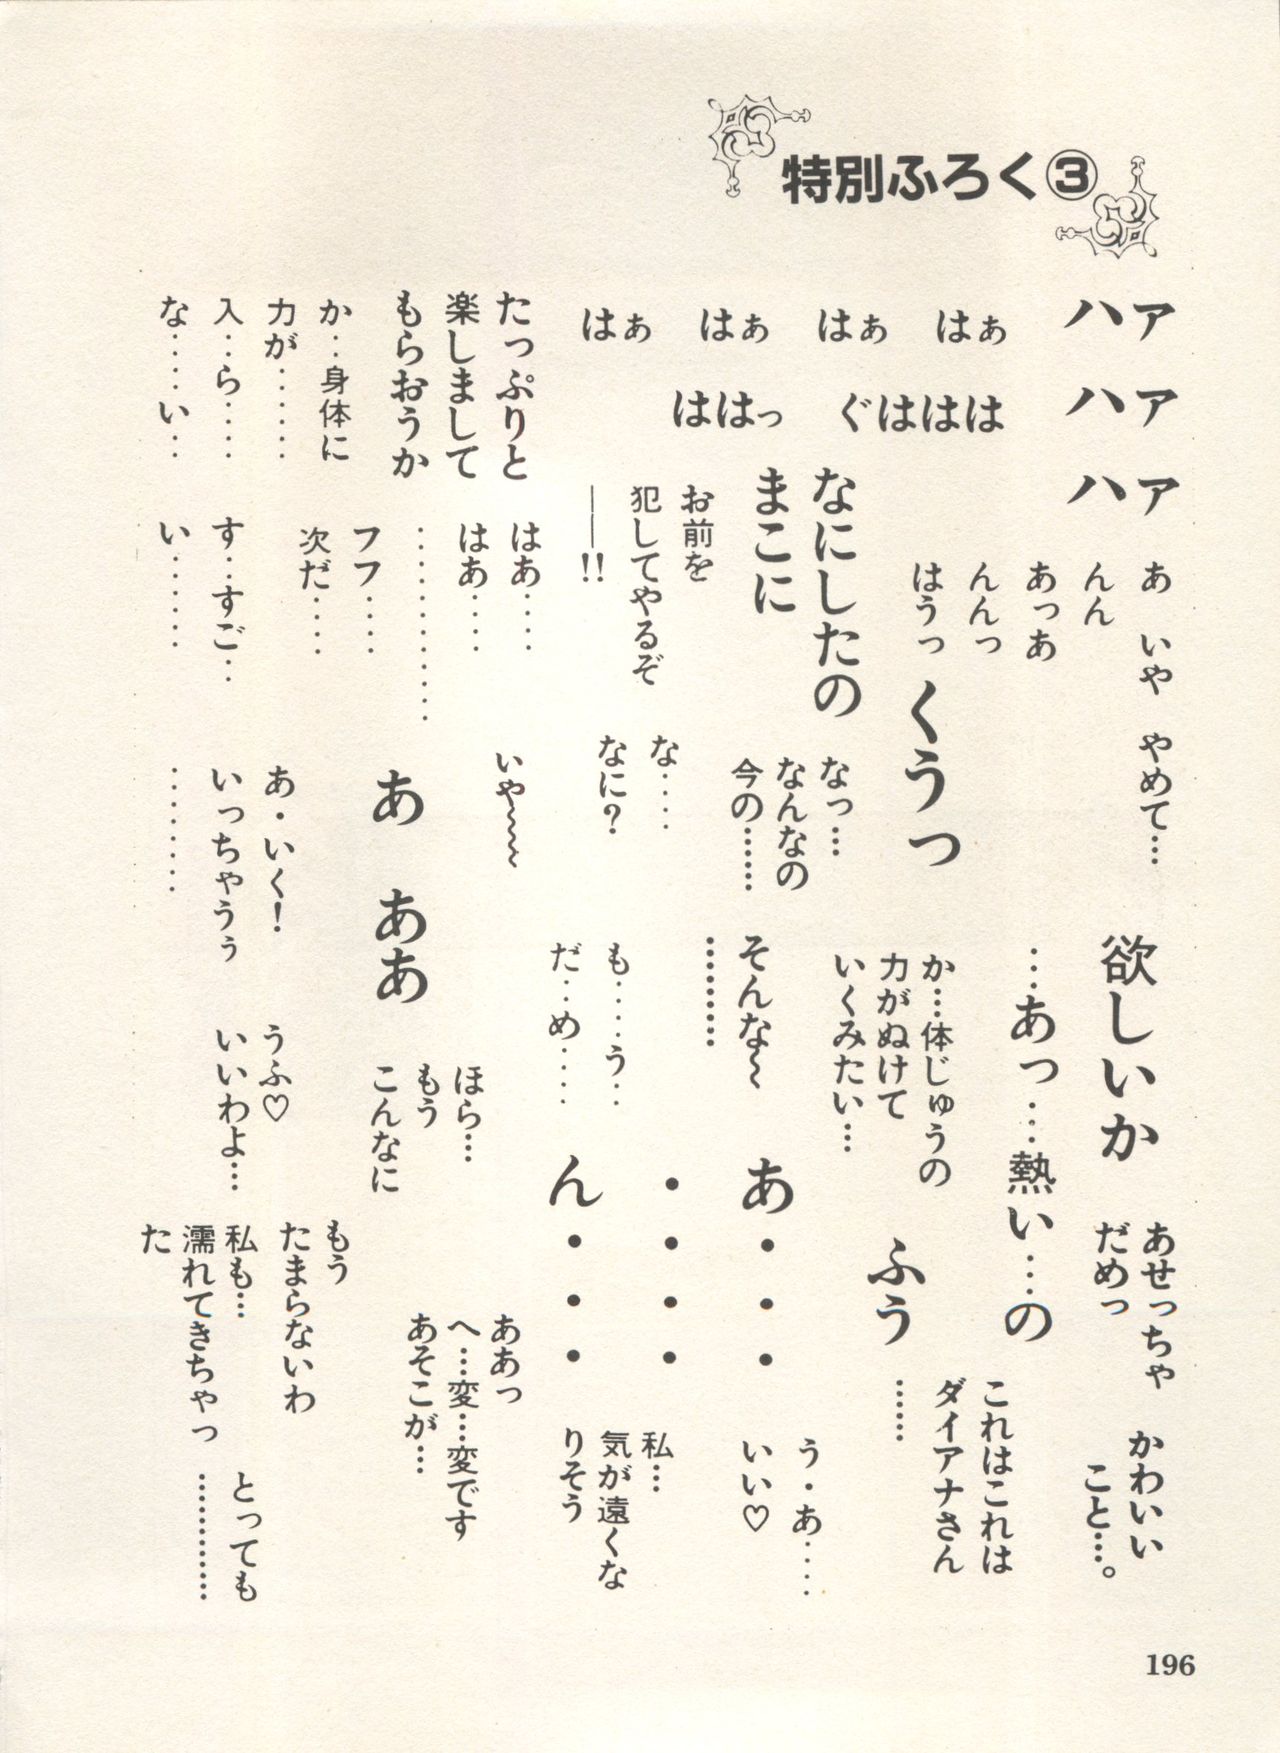 特別ふろく③
ハァ
ハァ
ハァ
はぁ
はぁ
はぁ
はぁ
ぐははは
ははっ
なにしたの
まこに
お前を
犯してやるぞ
——!!
たっぷりと
楽しまして
もらおうか
か‥身体に
力が……
入‥ら‥‥
な‥‥い‥
あ いや やめて…
んん
あっあ
んんっ
はうっ
くうっ
なっ…
なんなの
今の……
な‥‥
なに?
はあ‥‥
はあ‥‥
…………
フフ‥‥
次だ‥‥
す‥すご‥
い……
欲しいか
…あっ…熱い…の
か…体じゅうの
力がぬけて
いくみたい…
そんな〜
………
も‥‥う‥
だ‥め‥‥
いや〜〜
あ ああ
あ・いく!
いっちゃうぅ
………
あせっちゃ
だめっ
かわいい
こと…。
ふう
これはこれは
ダイアナさん
……
あ・・・
・・・・
ん・・・
う・あ‥‥
いい♡
私…
気が遠くな
りそう
ほら…
もう
こんなに
ああっ
へ…変…変です
あそこが…
うふ♡
いいわよ…
もう
たまらないわ
私も…
濡れてきちゃっ
た
とっても
…………
196